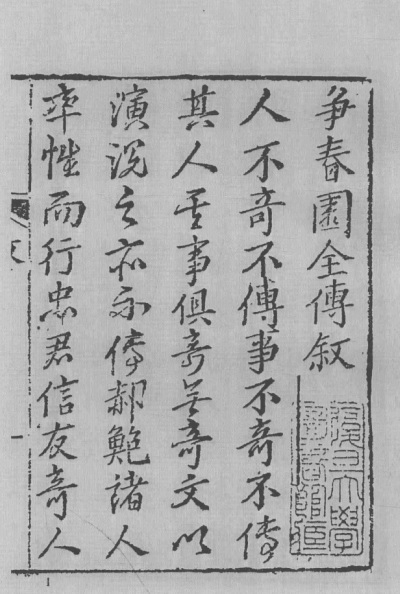 爭春園全傳敘
人不奇不傳事不奇不傳
其人其事俱奇無奇文以
演說之亦不傳郝鮑諸人
率性而行忠君信友奇人
復旦大學
圖書館